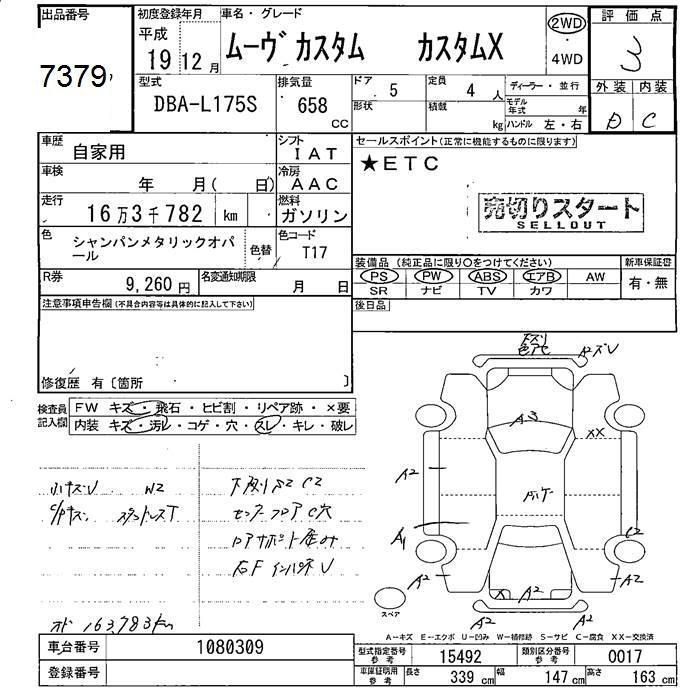 出品番号
7379
初度登録年月
平成
19 12 月
車名・グレード
ムーヴ カスタム カスタムX
2WD
4WD
評価点
3
外装 内装
D C
型式
DBA-L175S
排気量
658
CC
ドア
5
定員
4 人
形状
積載
kg
ディーラー・並行
モデル年式 年
ハンドル 左・右
車歴
自家用
シフト
IAT
車検
年 月( 日)
冷房
AAC
走行
16万3千782 km
燃料
ガソリン
色
シャンパンメタリックオパール
色替
色コード
T17
R券
9,260 円
名変通知期限
月 日
セールスポイント(正常に機能するものに限ります)
★ETC
売切りスタート
SELLOUT
装備品(純正品に限り○をつけてください)
新車保証書
PS PW ABS エアB AW
SR ナビ TV カワ
有・無
後日品
注意事項申告欄(不具合内容等は具体的に記入して下さい)
修復歴 有〔箇所 〕
検査員記入欄
FW キズ・飛石・ヒビ割・リペア跡・×要
内装 キズ・汚レ・コゲ・穴・スレ・キレ・破レ
小キズU W2
下廻りS2 C2
スタットレスT
センターフロア C穴
コアサポート歪み
右Fインパネ U
オド 163783km
色アセ
A2 ズU
A3
XX
A2
A1
C2
A2
A2
X
A2
A2
A2
スペア
A-キズ E-エクボ U-凹み W-補修跡 S-サビ C-腐食 XX-交換済
車台番号
1080309
登録番号
型式指定番号
参考
15492
類別区分番号
参考
0017
車庫証明用
参考
長さ 339 cm 幅 147 cm 高さ 163 cm